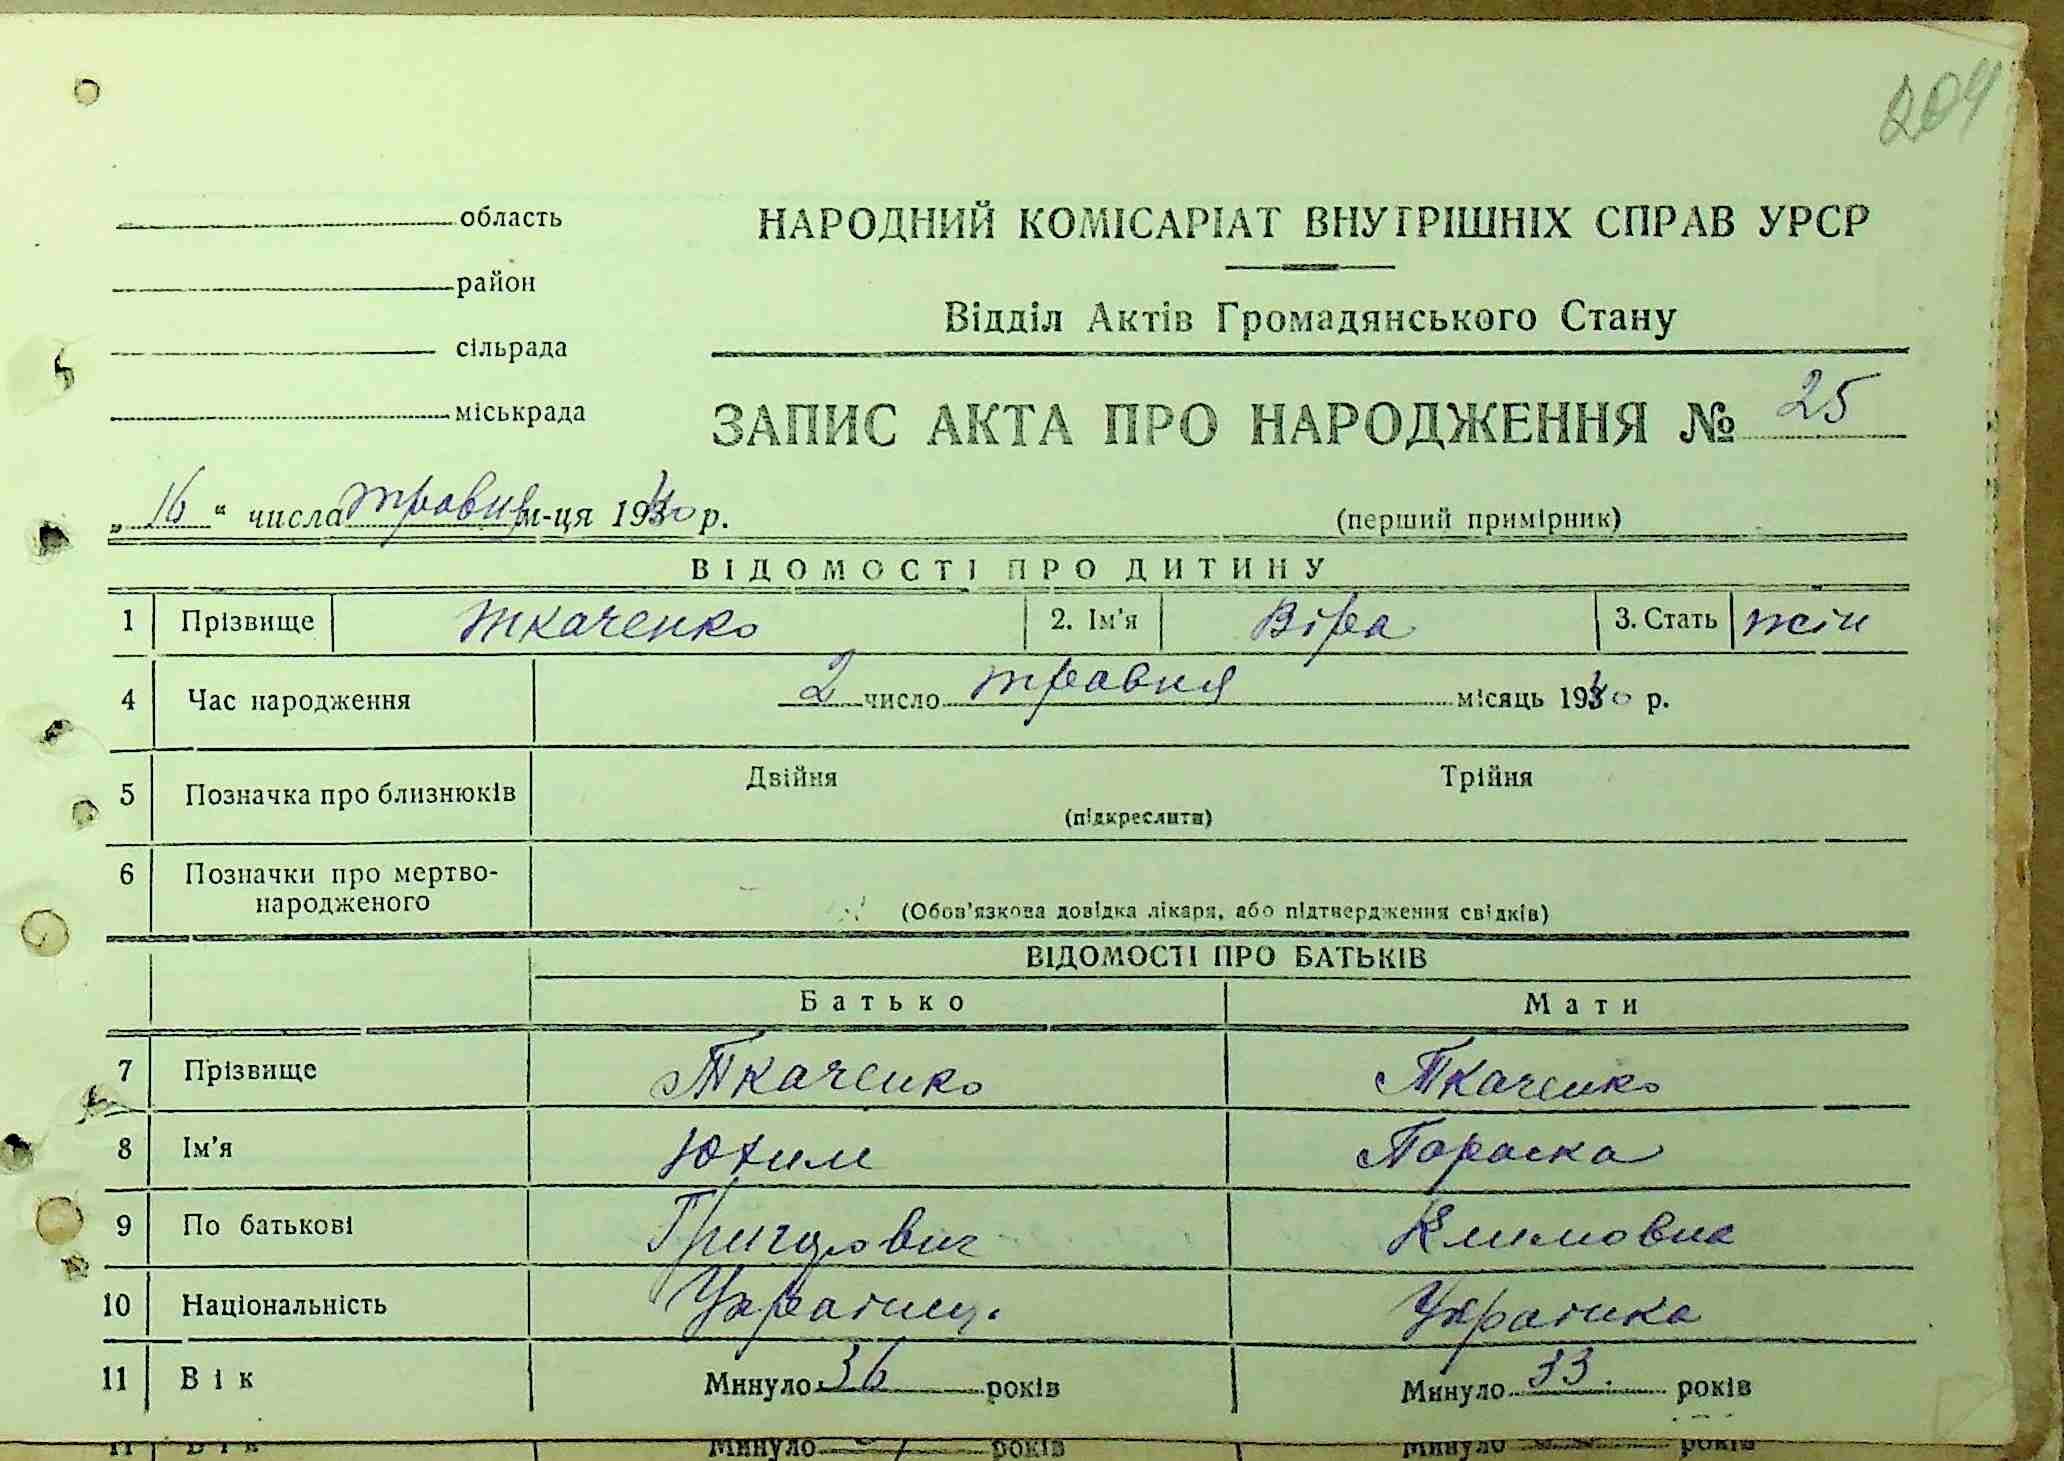 204
область
НАРОДНИЙ КОМІСАРІАТ ВНУТРІШНІХ СПРАВ УРСР
район
Відділ Актів Громадянського Стану
сільрада
міськрада
ЗАПИС АКТА ПРО НАРОДЖЕННЯ № 25
„16“ числа травня м-ця 1940 р.
(перший примірник)
ВІДОМОСТІ ПРО ДИТИНУ
1 Прізвище Ткаченко 2. Ім'я Віра 3. Стать жін
4 Час народження 2 число травня місяць 1940 р.
5 Позначка про близнюків Двійня Трійня
(підкреслити)
6 Позначки про мертво-
народженого
(Обов'язкова довідка лікаря, або підтвердження свідків)
ВІДОМОСТІ ПРО БАТЬКІВ
Батько Мати
7 Прізвище Ткаченко Ткаченко
8 Ім'я Юхим Параска
9 По батькові Григорович Климовна
10 Національність Україниц. Українка
11 Вік Минуло 36 років Минуло 33. років
11 Вік Минуло років Минуло років